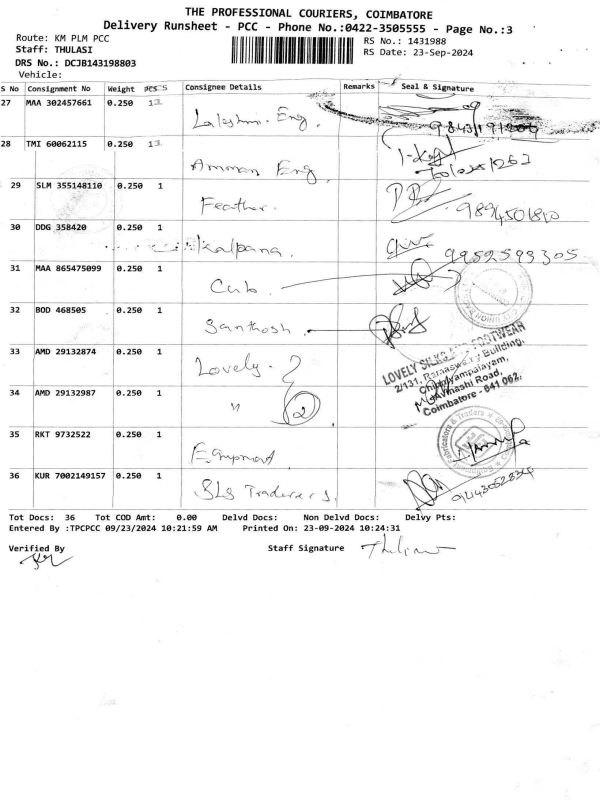 THE PROFESSIONAL COURIERS, COIMBATORE
Delivery Runsheet - PCC - Phone No.:0422-3505555 - Page No.:3
Route: KM PLM PCC
RS No.: 1431988
Staff: THULASI
RS Date: 23-Sep-2024
DRS No.: DCJB143198803
Vehicle:
S No Consignment No Weight pcs Consignee Details Remarks Seal & Signature
27 MAA 302457661 0.250 1 Lakshmi. Eng.
28 TMI 60062115 0.250 1 Amman Eng
29 SLM 355148110 0.250 1 Feather. 9894501810
30 DDG 358420 0.250 1 Kalpana. 9952593305
31 MAA 865475099 0.250 1 Cub.
32 BOD 468505 0.250 1 Santhosh.
33 AMD 29132874 0.250 1 Lovely -
34 AMD 29132987 0.250 1 " 2
LOVELY SILKS AND FOOTWEAR
2/131, Ramaswamy Building,
Chinniyampalayam,
Avinashi Road,
Coimbatore - 641 062.
35 RKT 9732522 0.250 1
36 KUR 7002149157 0.250 1 SLS Traderers.
Tot Docs: 36 Tot COD Amt: 0.00 Delvd Docs: Non Delvd Docs: Delvy Pts:
Entered By :TPCPCC 09/23/2024 10:21:59 AM Printed On: 23-09-2024 10:24:31
Verified By
Staff Signature